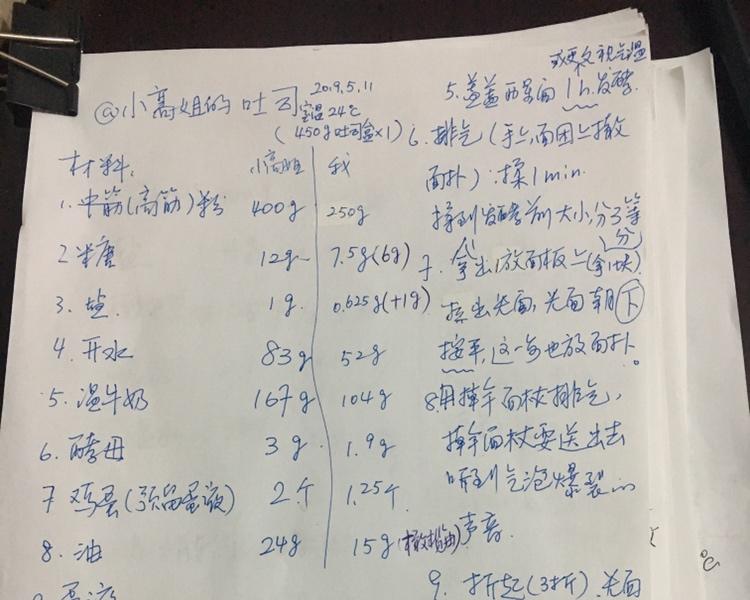 @小高姐的吐司
2019.5.11
室温24℃
(450g吐司盒×1)
材料: 小高姐 我
1. 中筋(高筋)粉 400g 250g
2 糖 12g 7.5g(6g)
3. 盐. 1g 0.625g(+1g)
4. 开水 83g 52g
5. 温牛奶 167g 104g
6. 酵母 3g 1.9g
7 鸡蛋(预留蛋液) 2个 1.25个
8. 油 24g 15g(橄榄油)
或更久 视气温
5. 盖盖 面 1h.发酵.
6. 排气 (手上,面团上撒
面扑):揉1min.
揉到发酵前大小,分3等
分
7. 拿出1个放面板上(拿1块)
揉出光面,光面朝下
按平,这一步也放面扑。
8.用擀面杖排气,
擀面杖要送出去
听到气泡爆裂的
声音.
9. 折起(3折).光面
℃